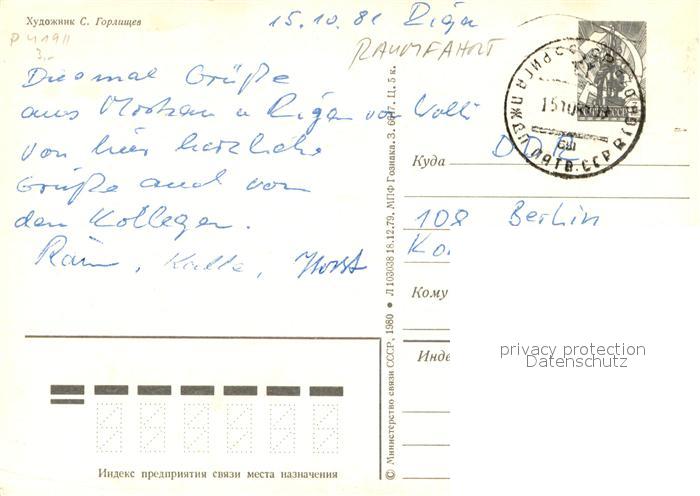 Художник С. Горлищев
15.10.81 Riga
P 41911
3.-
RAUMFAHRT
Diesmal Grüße
aus Moskau u. Riga von Kolle
von hier herzliche
Grüße auch von
den Kollegen.
Rain, Kalle, Horst
Куда
DDR
108 Berlin
Ko.
Кому
Инде
privacy protection
Datenschutz
Индекс предприятия связи места назначения
© Министерство связи СССР, 1980 ● Л 103038 18.12.79. МПФ Гознака. З. 6617. Ц. 5 к.